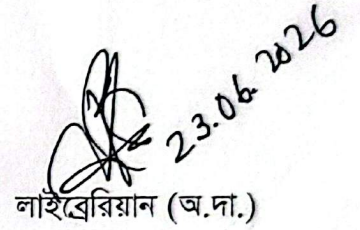 23.06.2026
লাইব্রেরিয়ান (অ.দা.)